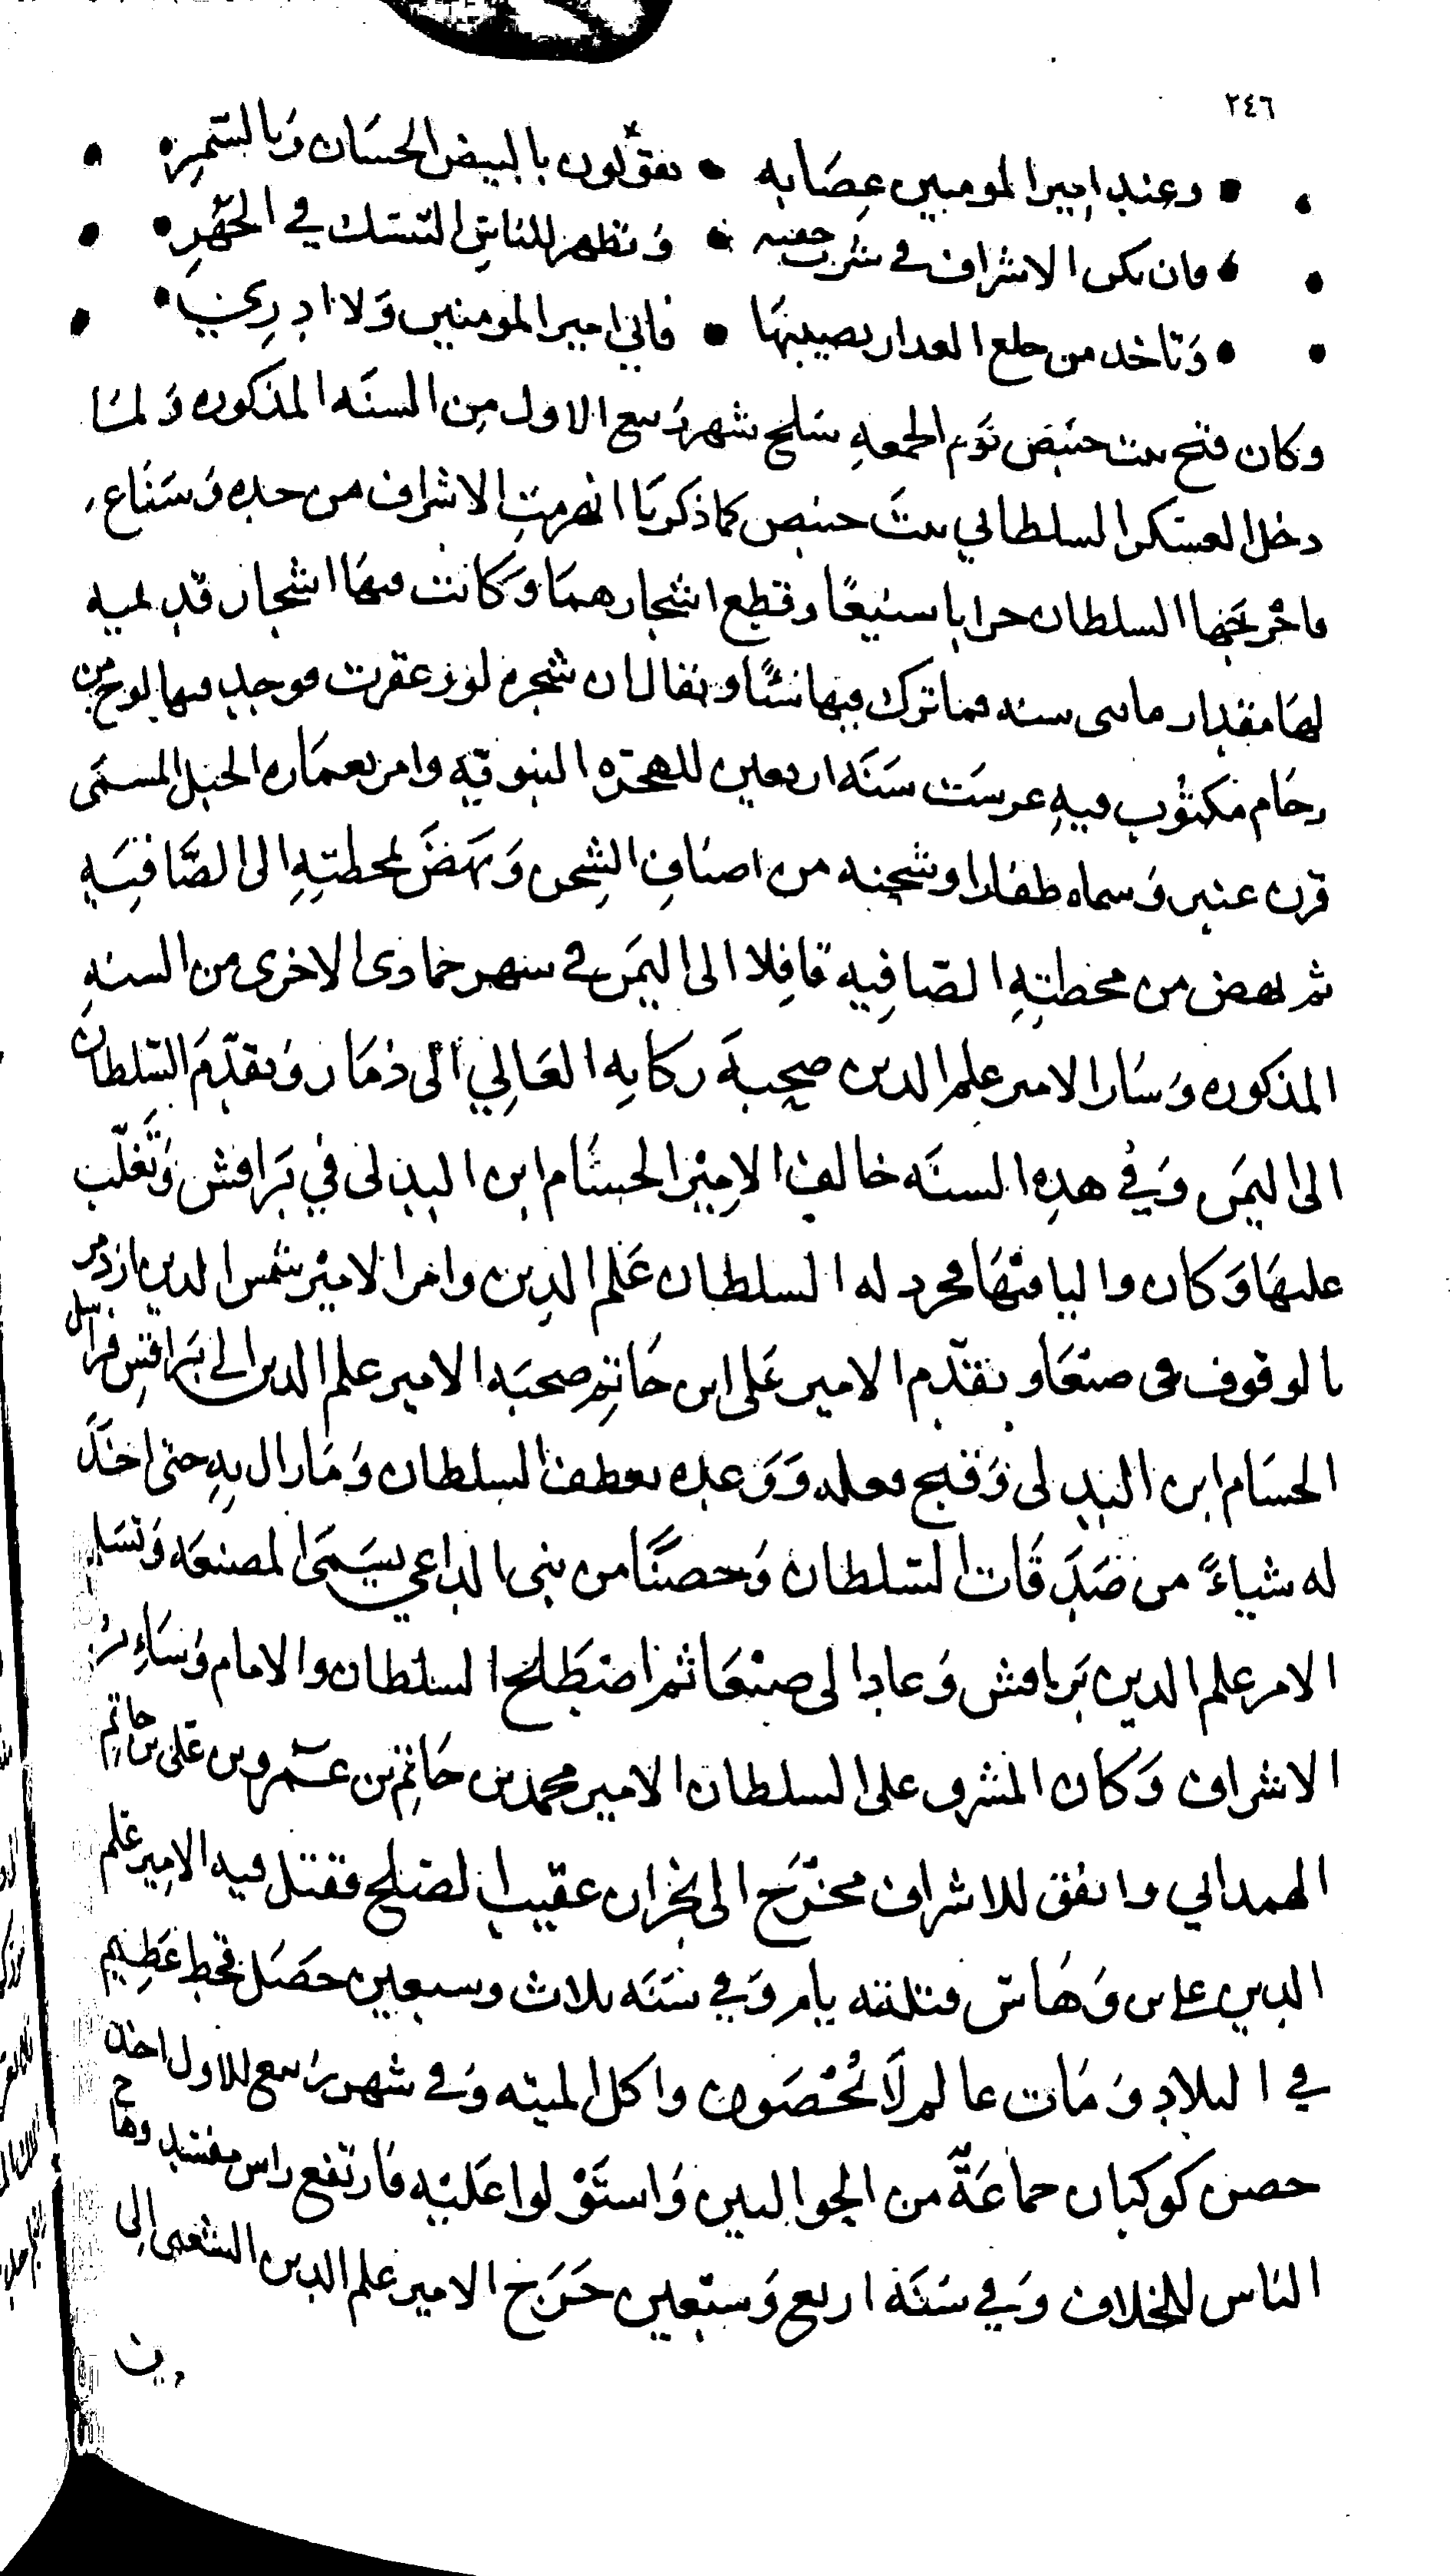 ٢٤٦
وعند امير المومنين عصابه • يقولون بالبيض الحسان وبالسمر
فان يكن الاشراف في شرب خفيه • وتظهر للناس التنسك في الجهر
وتاخد من خلع العدار نصيبها • فاني امير المومنين ولا ادري
وكان فتح بيت حنبص يوم الجمعه سلخ شهر ربيع الاول من السنه المذكوره ولما
دخل العسكر السلطاني بيت حنبص كما ذكرنا انهزمت الاشراف من حده وسناع
فاخربها السلطان خرابا شنيعا وقطع اشجارهما وكانت فيها اشجار قديميه
لها مقدار مايتي سنه فما ترك فيها شيا ويقال ان شجره لوز عقرت فوجد فيها لوح من
رخام مكتوب فيه غرست سنه اربعين للهجره النبويه وامر بعماره الجبل المسمى
قرن عنتر وسماه ظفارا وشحنه من اصناف الشحن ونهض لمحطته الى الصافيه
ثم نهض من محطته الصافيه قافلا الى اليمن في شهر جمادى الاخرى من السنه
المذكوره وسار الامير علم الدين صحبة ركابه العالي الى ذمار وتقدم السلطان
الى اليمن وفي هذه السنه خالف الامير الحسام ابن البدلى في براقش وتغلب
عليها وكان واليا فيها فجرد له السلطان علم الدين وامر الامير شمس الدين ازدمر
بالوقوف في صنعا وتقدم الامير على ابن حاتم صحبه الامير علم الدين الى براقش فراسل
الحسام ابن البدلى وقبح فعله ووعده بعطف السلطان وما زال به حتى اخذ
له شياء من صدقات السلطان وحصنا من بنى الداعي يسمى المصنعه وتسلم
الامر علم الدين براقش وعاد الى صنعا ثم اصطلح السلطان والامام وساير
الاشراف وكان المشرف على السلطان الامير محمد بن حاتم بن عمرو بن على بن حاتم
الهمداني واتفق للاشراف مخرج الى نجران عقيب الصلح فقتل فيه الامير علم
الدين على بن وهاس قتلته يام وفي سنه ثلاث وسبعين حصل قحط عظيم
في البلاد ومات عالم لا يحصون واكل الميته وفي شهر ربيع الاول اخذ
حصن كوكبان جماعة من الجوالبين واستولوا عليه فارتفع راس مفسد وهاج
الناس للخلاف وفي سنه اربع وسبعين خرج الامير علم الدين الشعبى الى